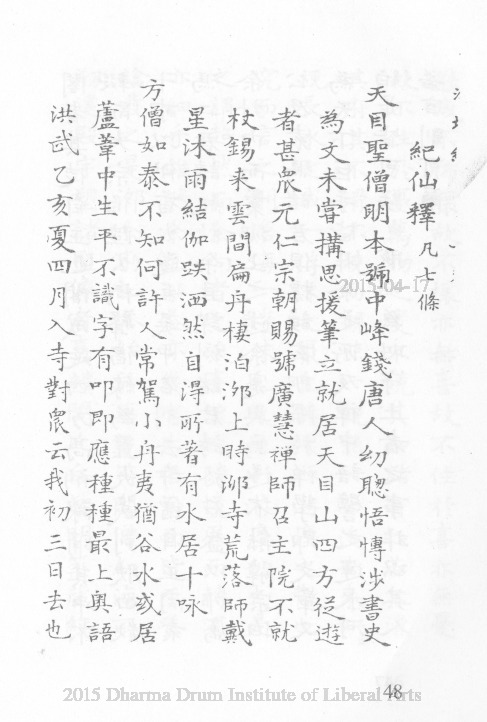 紀仙釋凡七條
天目聖僧明本號中峰錢唐人幼聰悟慱涉書史
為文未甞搆思援筆立就居天目山四方從遊
者甚眾元仁宗朝賜號廣慧禅師召主院不就
杖錫来雲間扁丹棲泊泖上時泖寺荒落師戴
星沐雨結伽趺洒然自淂所著有水居十咏
方僧如泰不知何許人常駕小丹夷猶谷水或居
蘆葦中生平不識字有叩即應種種最上奥語
洪武乙亥夏四月入寺對眾云我初三日去也
2015-04-17
48
2015 Dharma Drum Institute of Liberal Arts